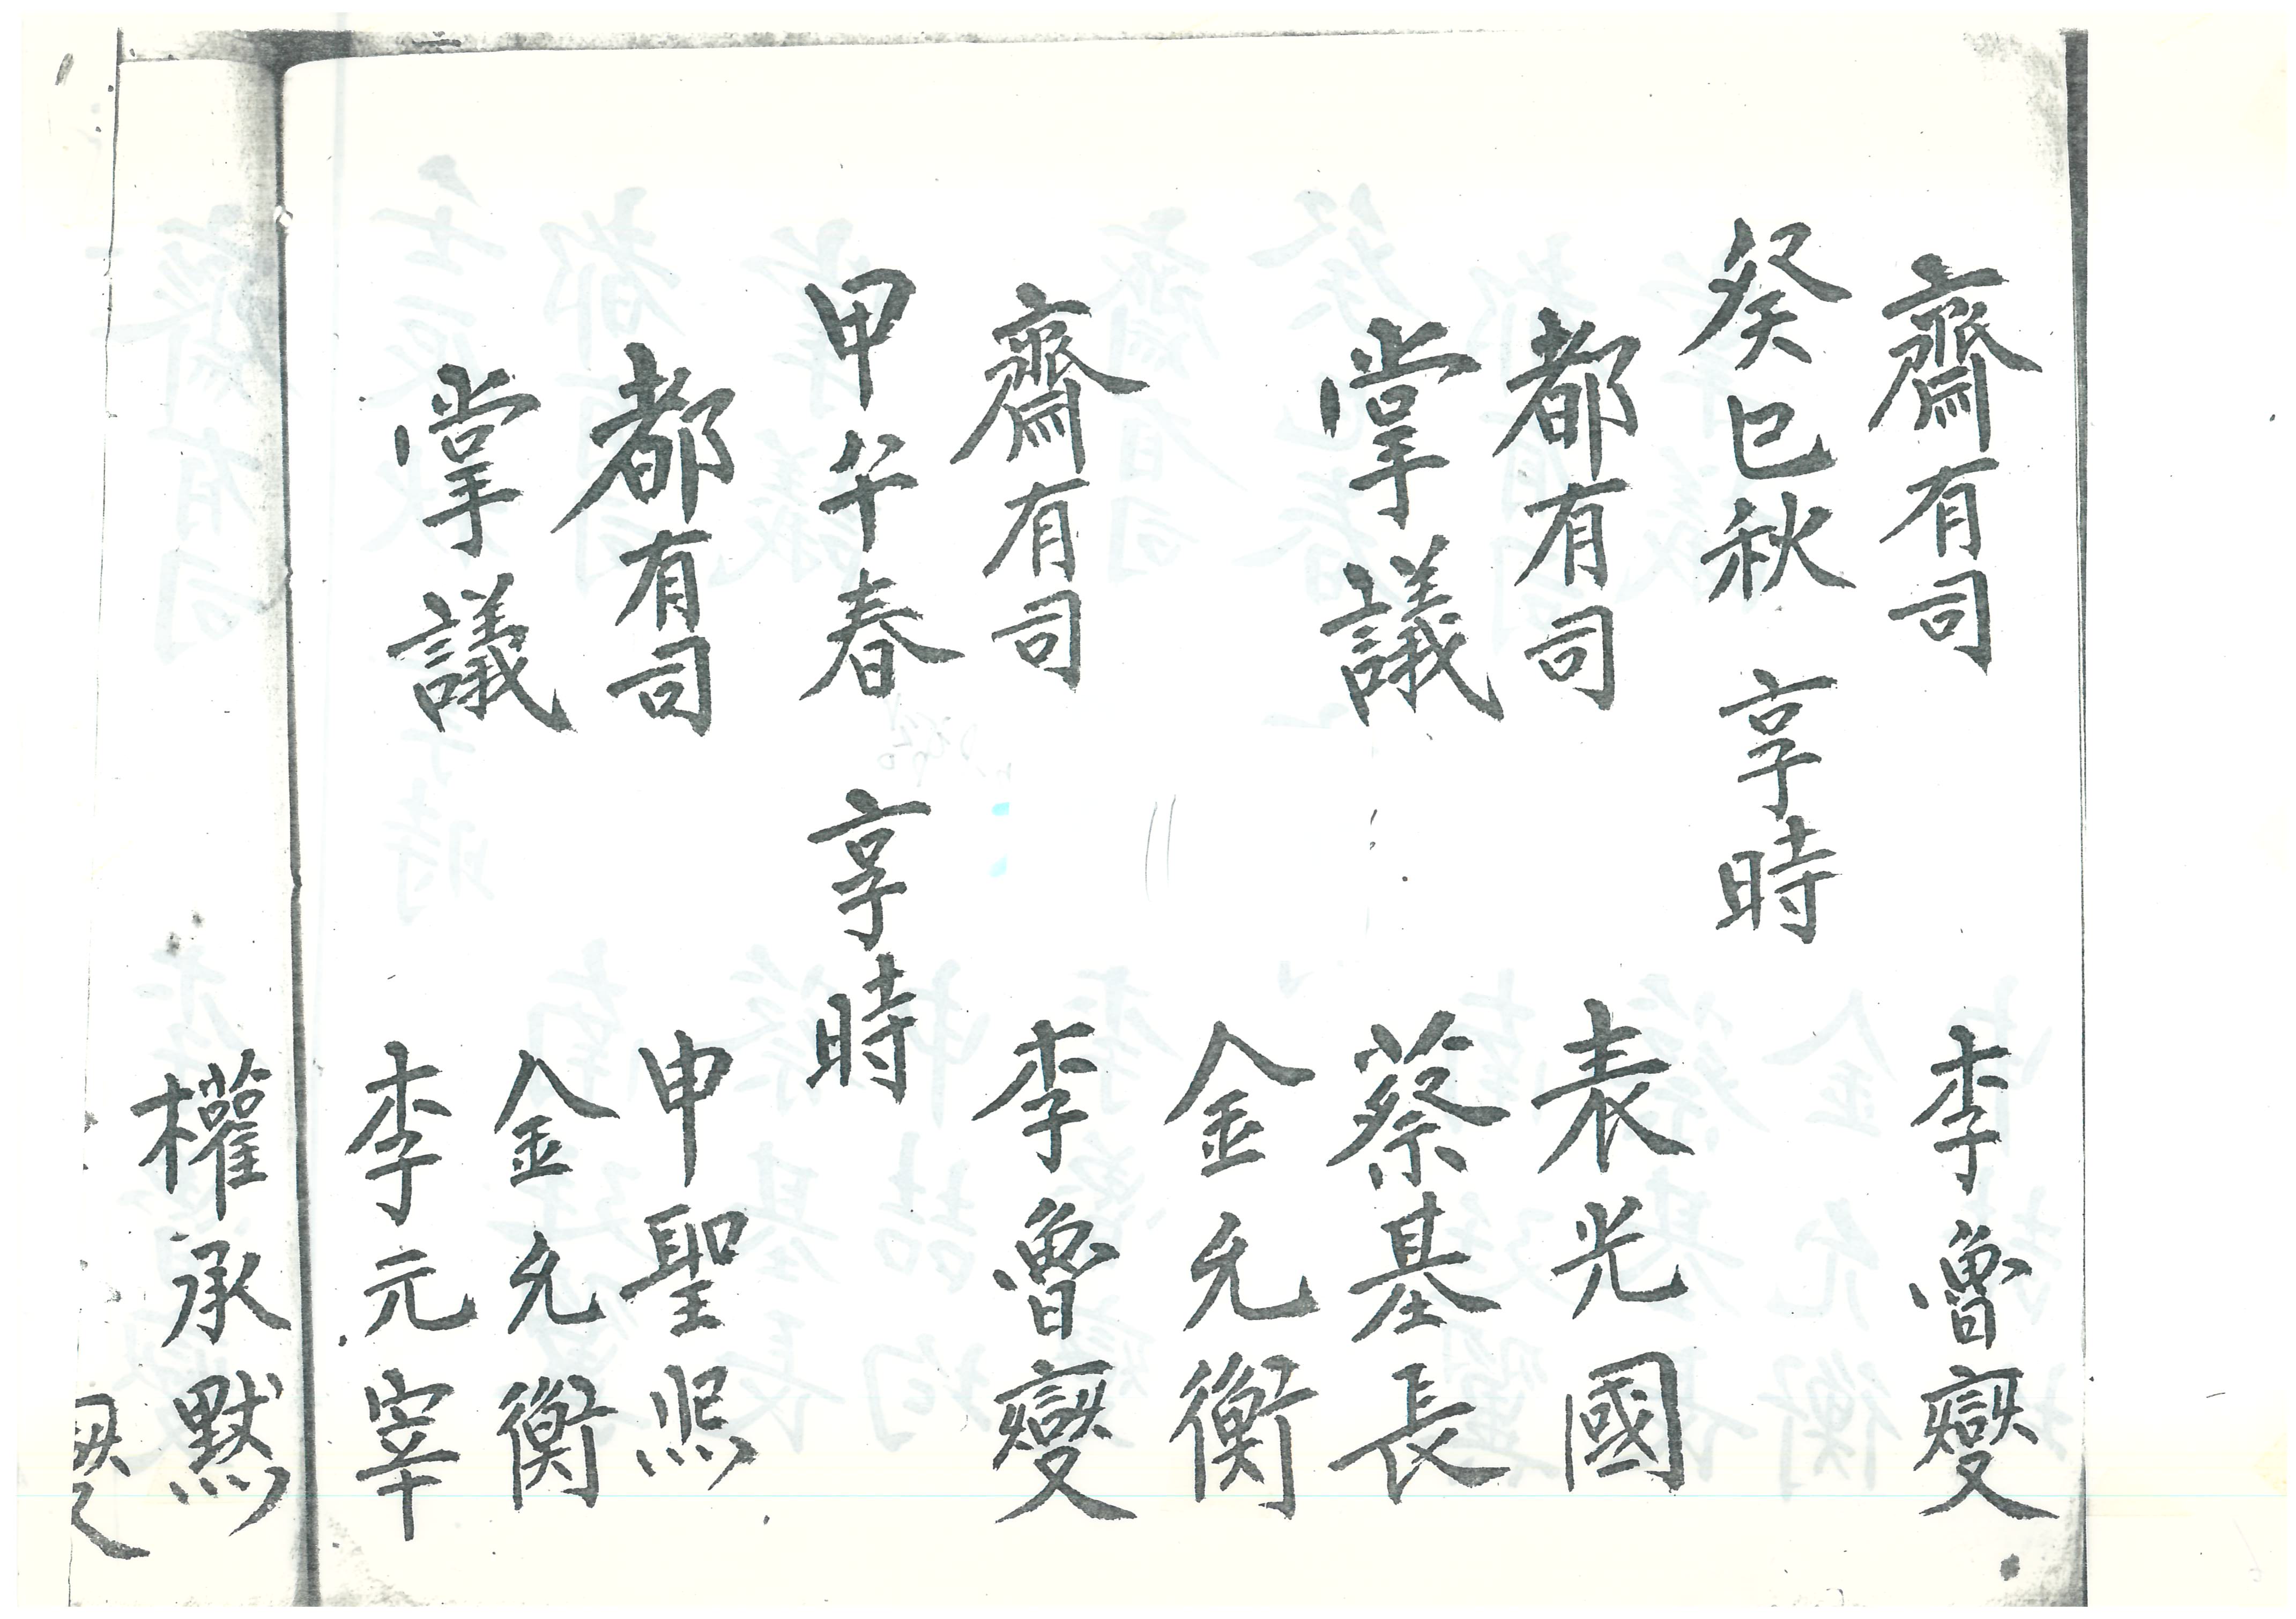 齋有司 李魯燮
癸巳秋 享時
都有司 表光國
掌議 蔡基長
金允衡
齋有司 李魯燮
甲午春 享時
都有司 申聖熙
金允衡
掌議 李元宰
權承默